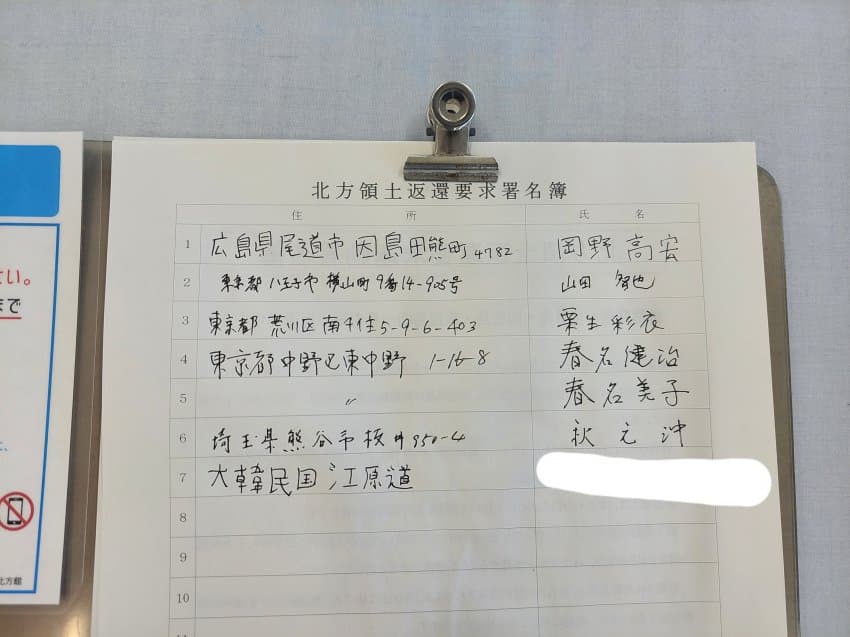 北方領土返還要求署名簿
住所 氏名
1 広島県尾道市 因島田熊町 4782 岡野 高宏
2 東京都 八王子市 横山町 9番14-905号 山田 智也
3 東京都 荒川区 南千住5-9-6-403 栗生 彩衣
4 東京都中野区東中野 1-16-8 春名 健治
5 〃 春名 美子
6 埼玉県熊谷市板井950-4 秋元
7 大韓民国 江原道
8
9
10
さい。
まで
北方館